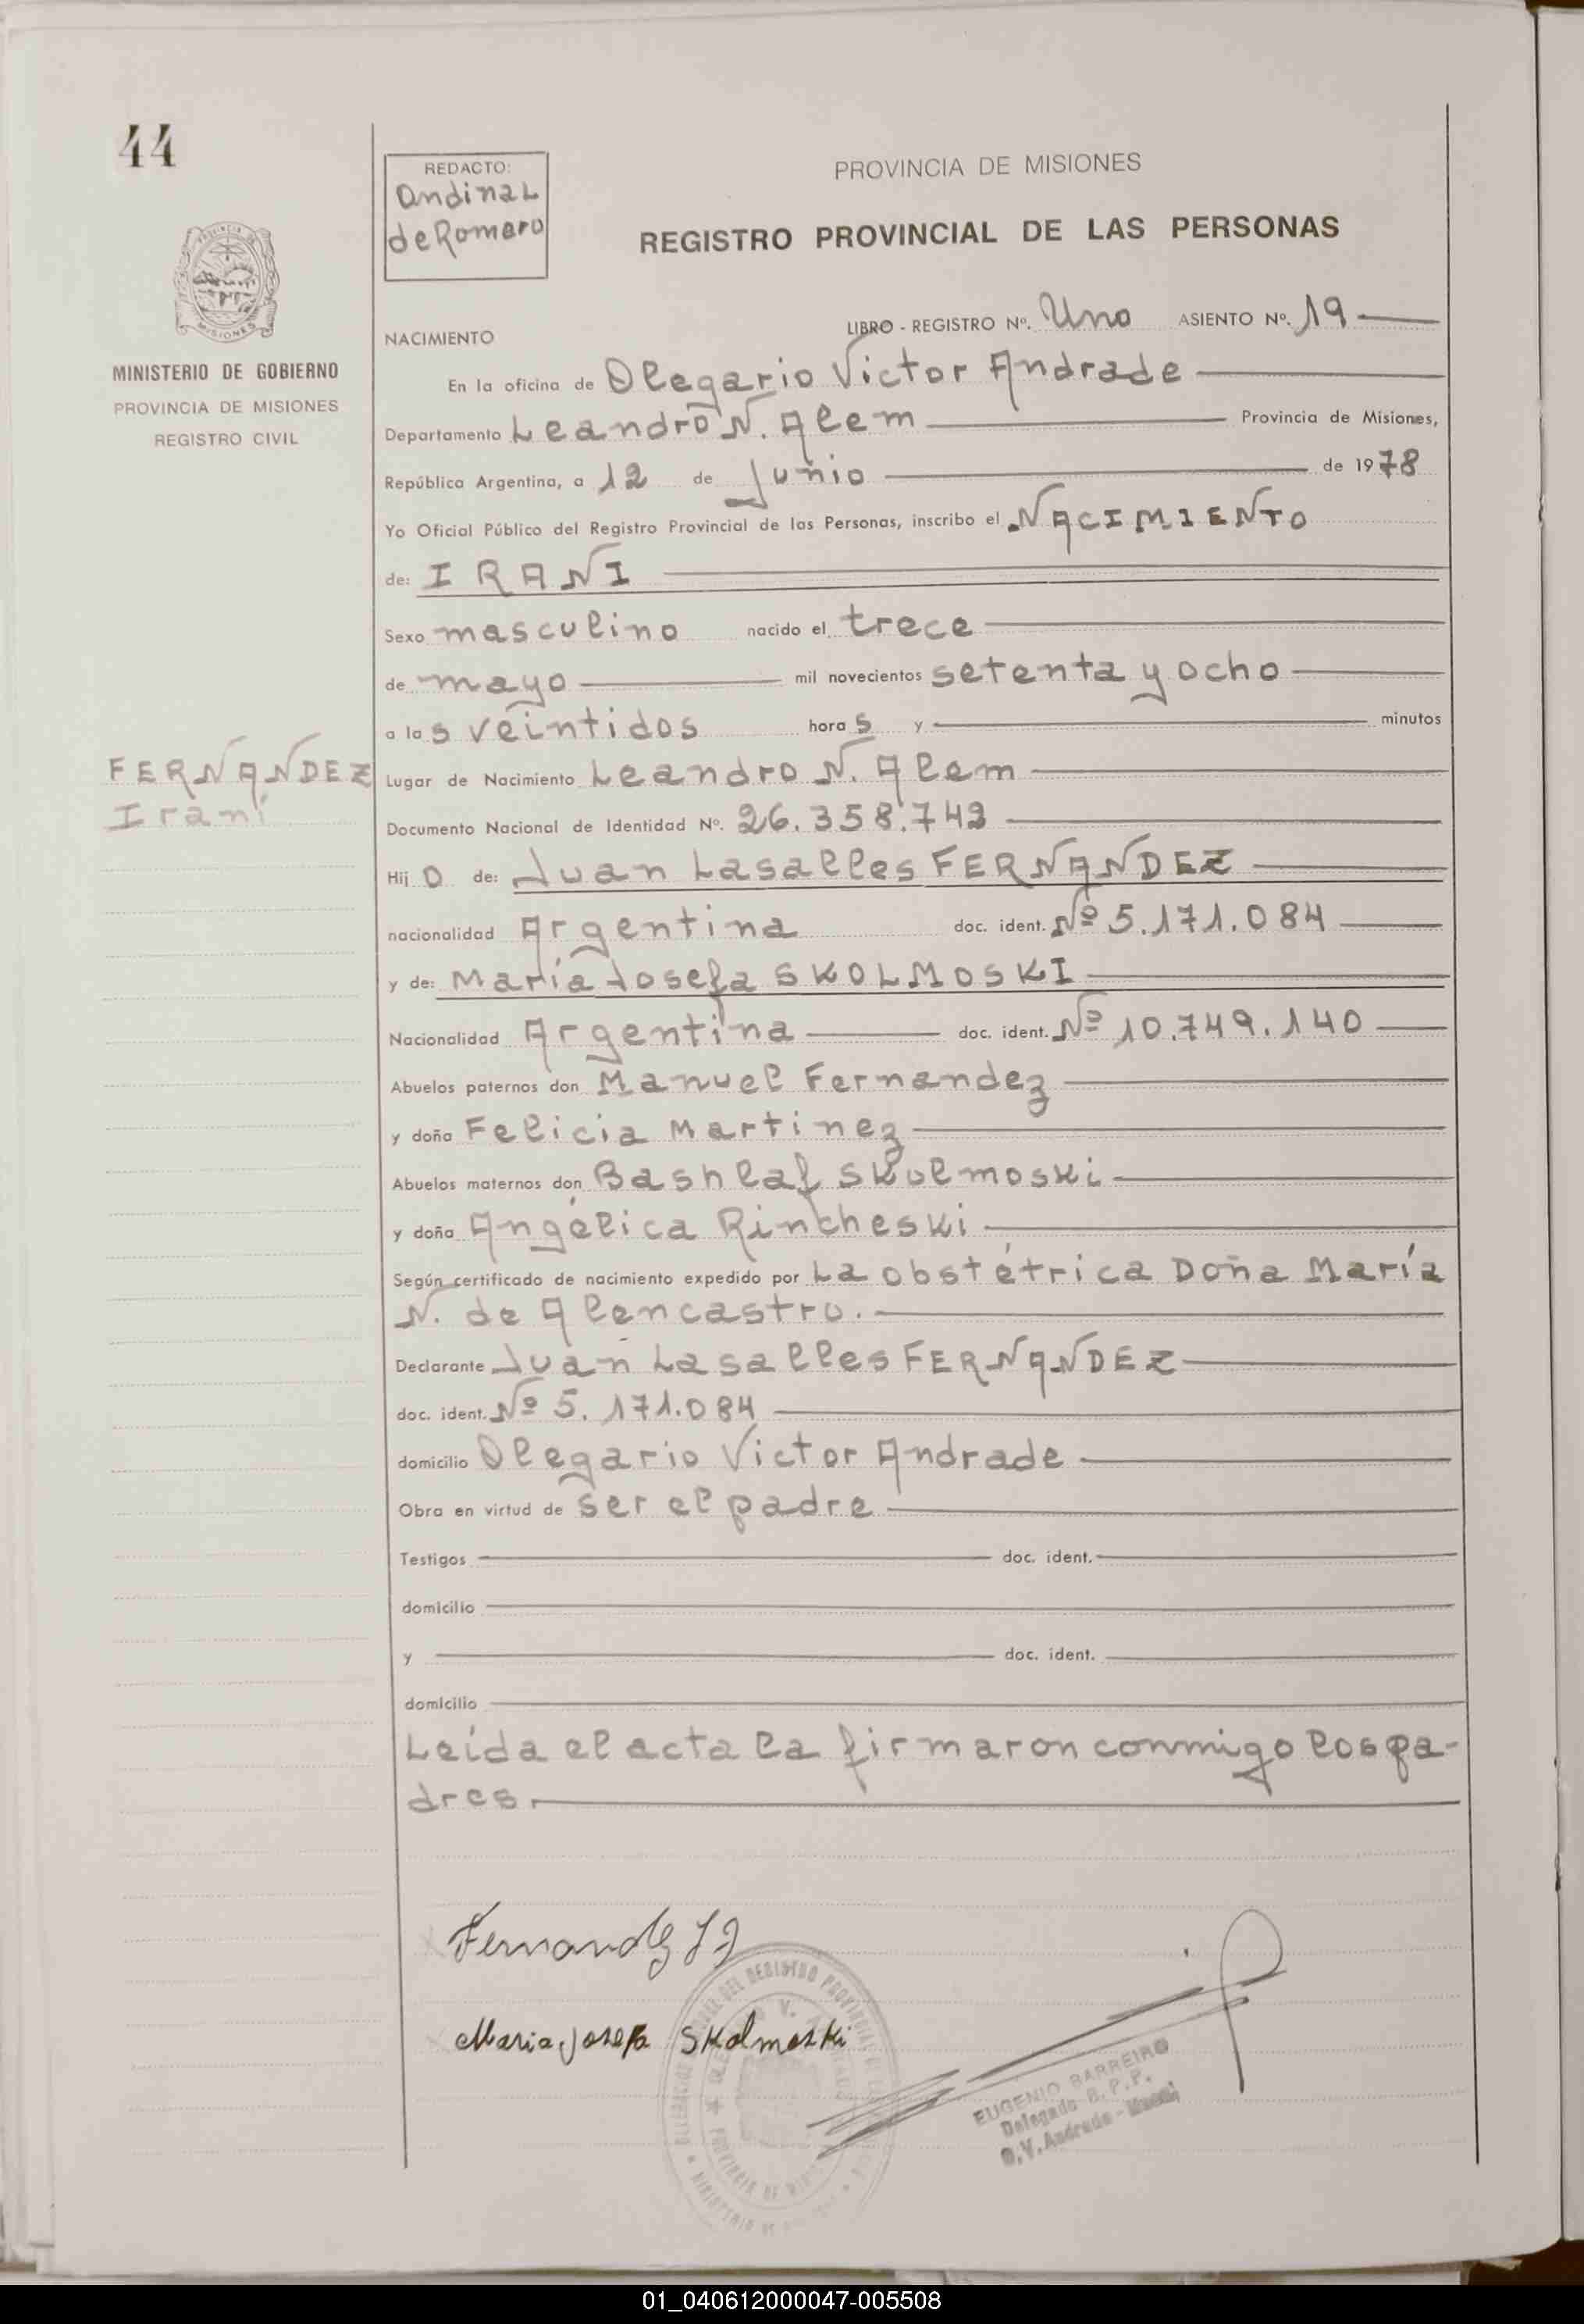 44
REDACTO:
Andina L
de Romero
PROVINCIA DE MISIONES
REGISTRO PROVINCIAL DE LAS PERSONAS
MISIONES
MINISTERIO DE GOBIERNO
PROVINCIA DE MISIONES
REGISTRO CIVIL
NACIMIENTO LIBRO - REGISTRO Nº. Uno ASIENTO Nº. 19
En la oficina de Olegario Victor Andrade
Departamento Leandro N. Alem Provincia de Misiones,
República Argentina, a 12 de Junio de 1978
Yo Oficial Público del Registro Provincial de las Personas, inscribo el NACIMIENTO
de: IRANI
Sexo masculino nacido el trece
de mayo mil novecientos setenta y ocho
a las veintidos horas y minutos
FERNANDEZ
Irani
Lugar de Nacimiento Leandro N. Alem
Documento Nacional de Identidad Nº. 26.358.742
Hijo de: Juan Lasalles FERNANDEZ
nacionalidad Argentina doc. ident. Nº 5.171.084
y de: María Josefa SKOLMOSKI
Nacionalidad Argentina doc. ident. Nº 10.749.140
Abuelos paternos don Manuel Fernandez
y doña Felicia Martinez
Abuelos maternos don Bashlaf Skolmoski
y doña Angélica Rincheski
Según certificado de nacimiento expedido por La obstétrica Doña María
N. de Alencastro.
Declarante Juan Lasalles FERNANDEZ
doc. ident. Nº 5.171.084
domicilio Olegario Victor Andrade
Obra en virtud de ser el padre
Testigos doc. ident.
domicilio
y doc. ident.
domicilio
Leída el acta la firmaron conmigo los pa-
dres.
Maria Josefa Skolmoski
EUGENIO BARREIRO
Delegado R. P. P.
O. V. Andrade -
01_040612000047-005508